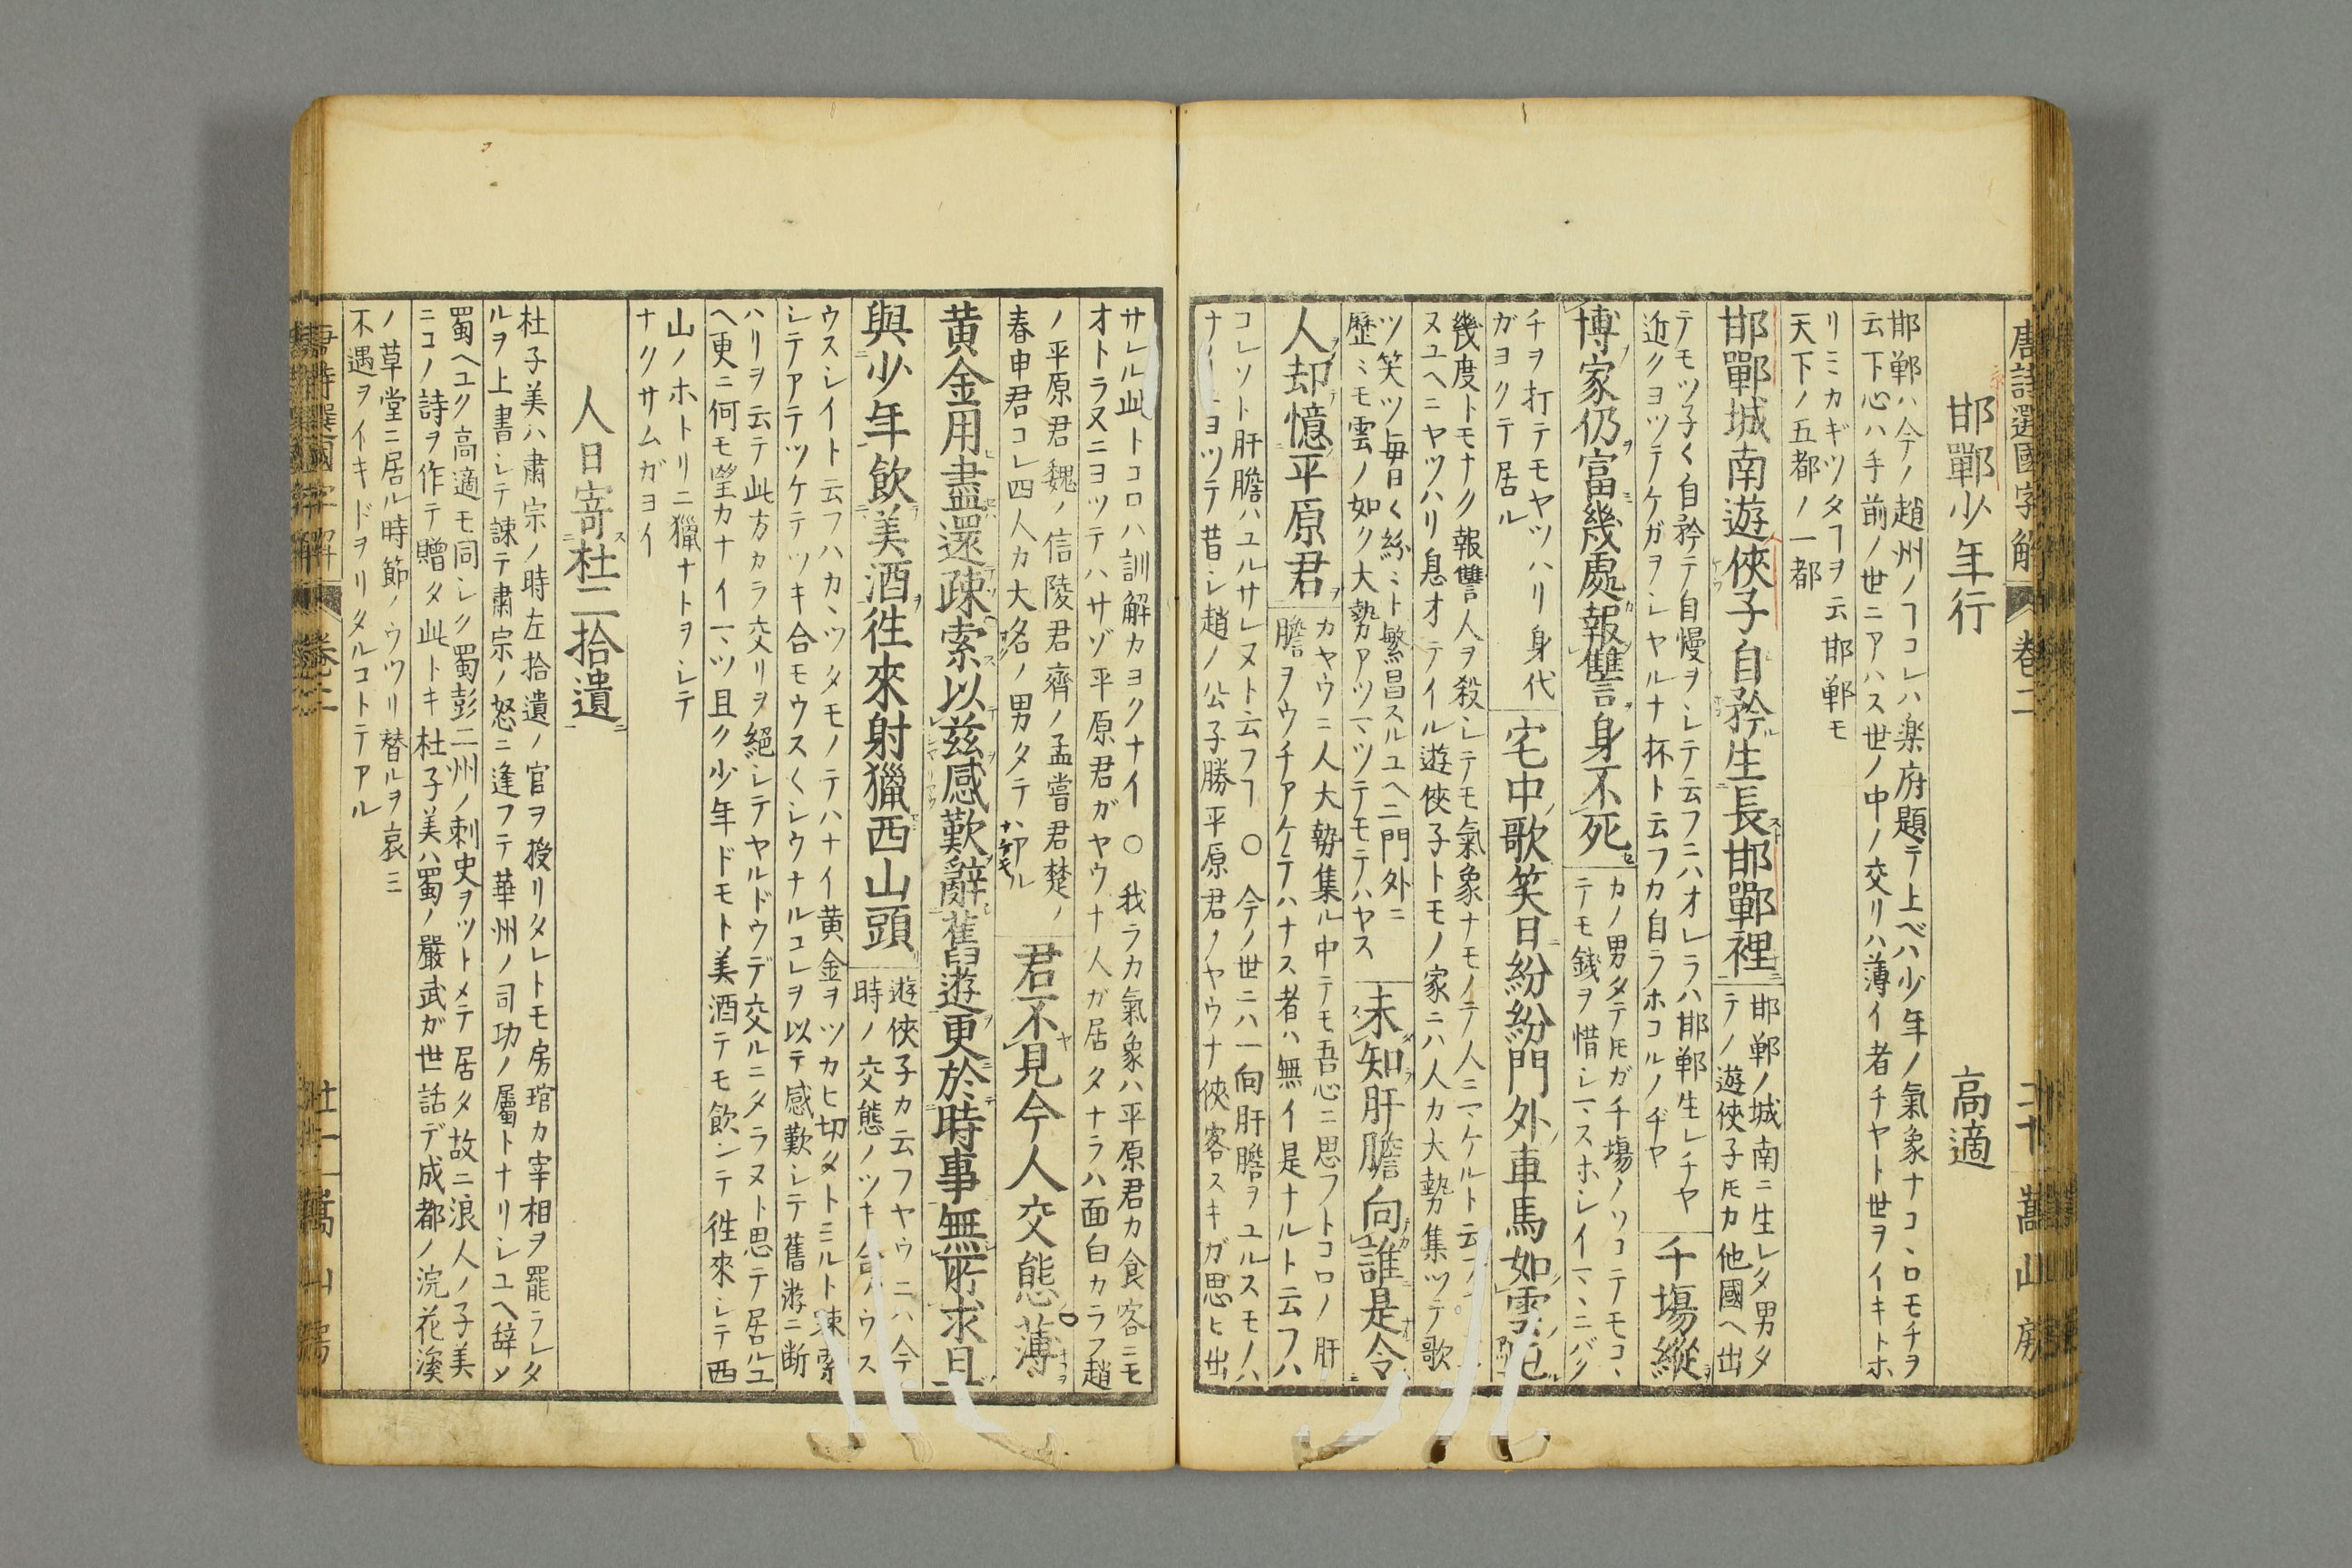 唐詩選國字解 巻二 嵩山房
邯鄲少年行 高適
邯鄲ハ今ノ趙州ノヿコレハ楽府題テ上ベハ少年ノ氣象ナコヽロモチヲ
云下心ハ手前ノ世ニアハス世ノ中ノ交リハ薄イ者チヤト世ヲイキトホ
リニカギツタヿヲ云邯鄲モ
天下ノ五都ノ一都
邯鄲城南遊俠子自矜生長邯鄲裡
邯鄲ノ城南ニ生レタ男タ
テノ遊俠子𪜈カ他國ヘ出
テモツ子〱自矜テ自慢ヲシテ云フニハオレラハ邯鄲生レチヤ
近クヨツテケガヲシヤルナ杯ト云フカ自ラホコルノヂヤ
千塲縱
博家仍富幾處報讐身不死
カノ男タテ𪜈ガ千塲ノソコテモコヽ
テモ錢ヲ惜シマスホシイマヽニバク
チヲ打テモヤツハリ身代
ガヨクテ居ル
宅中歌笑日紛紛門外車馬如雲屯
幾度トモナク報讐人ヲ殺シテモ氣象ナモノテ人ニマケルト云
ヌユヘニヤツハリ息オテイル遊俠子トモノ家ニハ人カ大勢集ツテ歌
ツ笑ツ毎日〱紛〻ト繁昌スルユヘニ門外ニ
歷〻モ雲ノ如ク大勢アツマツテモテハヤス
未知肝膽向誰是令
人却憶平原君
カヤウニ人大勢集ル中テモ吾心ニ思フトコロノ肝
膽ヲウチアケテハナス者ハ無イ是ナルト云フハ
コレソト肝膽ハユルサレヌト云フヿ ○ 今ノ世ニハ一向肝膽ヲユルスモノハ
ナイ ヨツテ昔シ趙ノ公子勝平原君ノヤウナ俠客スキガ思ヒ出
サレル此トコロハ訓解カヨクナイ ○ 我ラカ氣象ハ平原君カ食客ニモ
オトラヌニヨツテハサゾ平原君ガヤウナ人ガ居タナラハ面白カラフ趙
ノ平原君魏ノ信陵君齊ノ孟嘗君楚ノ
春申君コレ四人カ大名ノ男タテ
君不見今人交態薄
黄金用盡還疎索以茲感歎辭舊遊更於時事無所求且
與少年飲美酒徃來射獵西山頭
遊俠子カ云フヤウニハ今
時ノ交態ノツキ合ノウス
ウスレイト云フハカヽツタモノテハナイ黄金ヲツカヒ切タトミルト疎索
シテアテツケテツキ合モウス〱シウナルコレヲ以テ感歎シテ舊游ニ断
ハリヲ云テ此方カラ交リヲ絕シテヤルドウデ交ルニタラヌト思テ居ルユ
ヘ更ニ何モ望カナイマヅ且ク少年ドモト美酒テモ飲ンテ徃來シテ西
山ノホトリニ獵ナトヲシテ
ナクサムガヨイ
人日寄杜二拾遺
杜子美ハ肅宗ノ時左拾遺ノ官ヲ授リタレトモ房琯カ宰相ヲ罷ラレタ
ルヲ上書シテ諫テ肅宗ノ怒ニ逢フテ華州ノ司功ノ屬トナリシユヘ辞メ
蜀ヘユク高適モ同シク蜀彭二州ノ刺史ヲツトメテ居タ故ニ浪人ノ子美
ニコノ詩ヲ作テ贈タ此トキ杜子美ハ蜀ノ嚴武ガ世話デ成都ノ浣花溪
ノ草堂ニ居ル時節ノウツリ替ルヲ哀ミ
不遇ヲイキドヲリタルコトテアル
唐詩選國字解 巻二